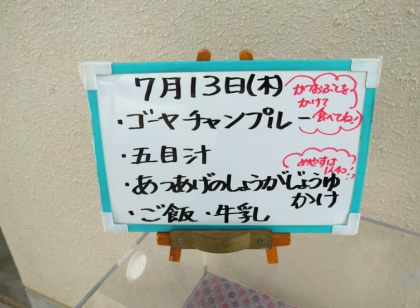 7月13日(木)
かつおぶしを
かけて
食べてね!
・ゴーヤチャンプルー
・五目汁
めやすは
・あつあげのしょうがじょうゆ
かけ
・ご飯・牛乳